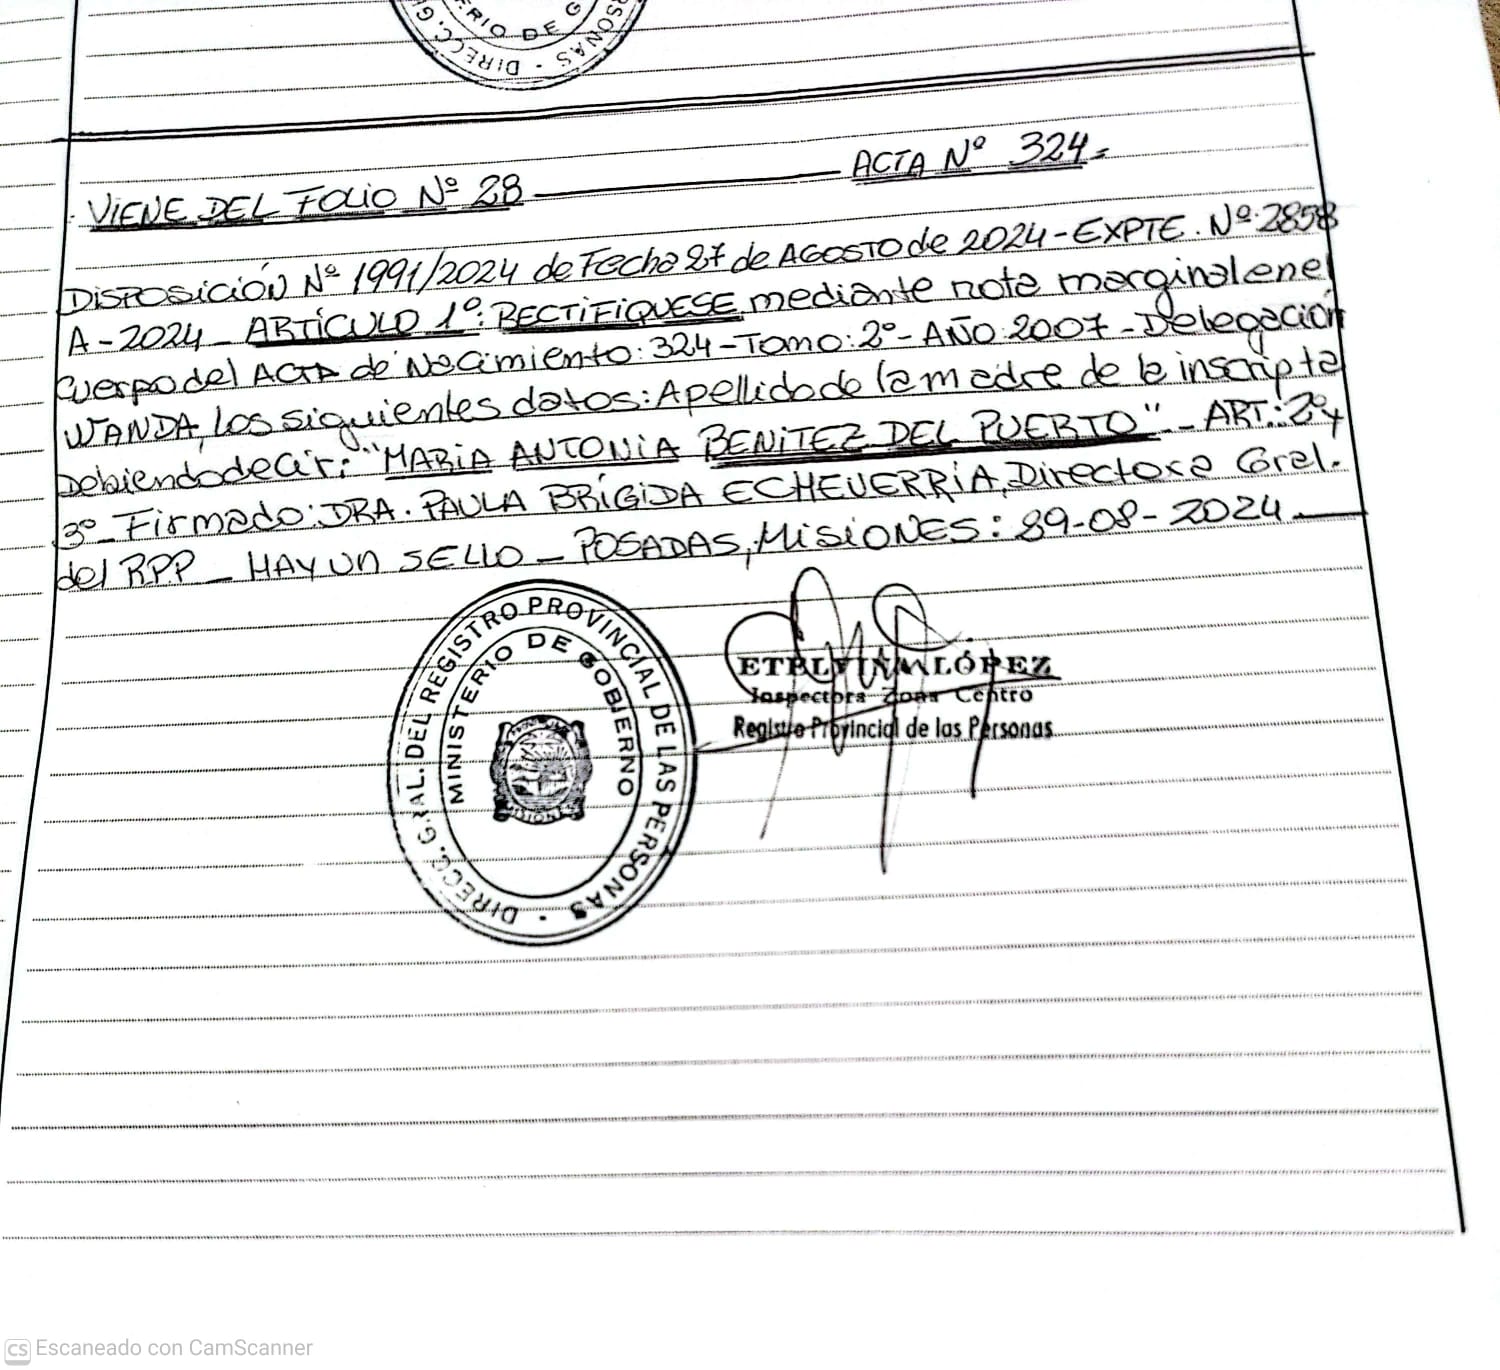 DIRECC. G
ERIO DE G
RSONAS
VIENE DEL FOLIO Nº 28 ACTA Nº 324.
DISPOSICIÓN Nº 1991/2024 de Fecha 27 de AGOSTO de 2024 - EXPTE. Nº 2858
A - 2024 - ARTÍCULO 1º: RECTIFIQUESE mediante nota marginal en el
Cuerpo del ACTA de Nacimiento: 324 - Tomo: 2º - AÑO: 2007 - Delegación
WANDA, los siguientes datos: Apellido de la madre de la inscripta
Debiendo decir: "MARIA ANTONIA BENITEZ DEL PUERTO" - ART.: 2º y
3º - Firmado: DRA. PAULA BRÍGIDA ECHEVERRÍA, Directora Gral.
del RPP - HAY UN SELLO - POSADAS, MISIONES: 29-08-2024
DIRECC. GRAL. DEL REGISTRO PROVINCIAL DE LAS PERSONAS
MINISTERIO DE GOBIERNO
MISIONES
ETELVINA LÓPEZ
Inspectora Zona Centro
Registro Provincial de las Personas
CS Escaneado con CamScanner